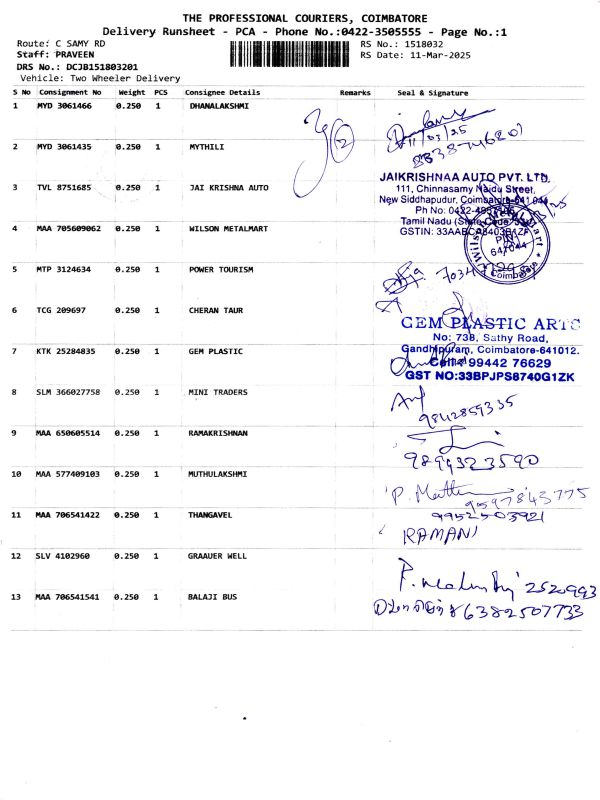 THE PROFESSIONAL COURIERS, COIMBATORE
Delivery Runsheet - PCA - Phone No.:0422-3505555 - Page No.:1
Route: C SAMY RD RS No.: 1518032
Staff: PRAVEEN RS Date: 11-Mar-2025
DRS No.: DCJB151803201
Vehicle: Two Wheeler Delivery
S No Consignment No Weight PCS Consignee Details Remarks Seal & Signature
1 MYD 3061466 0.250 1 DHANALAKSHMI
11/03/25
2 MYD 3061435 0.250 1 MYTHILI
JAIKRISHNAA AUTO PVT. LTD.
3 TVL 8751685 0.250 1 JAI KRISHNA AUTO 111, Chinnasamy Naidu Street,
New Siddhapudur, Coimbatore-641 044
Ph No: 0422-
Tamil Nadu (State Code
4 MAA 705609062 0.250 1 WILSON METALMART
GSTIN:
Wilson Metal Mart
PIN
641044
Coimbatore
5 MTP 3124634 0.250 1 POWER TOURISM
6 TCG 209697 0.250 1 CHERAN TAUR
GEM PLASTIC ARTS
No: 73B, Sathy Road,
7 KTK 25284835 0.250 1 GEM PLASTIC Gandhipuram, Coimbatore-641012.
Cell: 99442 76629
GST NO:33BPJPS8740G1ZK
8 SLM 366027758 0.250 1 MINI TRADERS
9842859335
9 MAA 650605514 0.250 1 RAMAKRISHNAN
9899323590
10 MAA 577409103 0.250 1 MUTHULAKSHMI
9597843775
11 MAA 706541422 0.250 1 THANGAVEL 9952503921
RAMANI
12 SLV 4102960 0.250 1 GRAAUER WELL
2520993
13 MAA 706541541 0.250 1 BALAJI BUS 6382507733